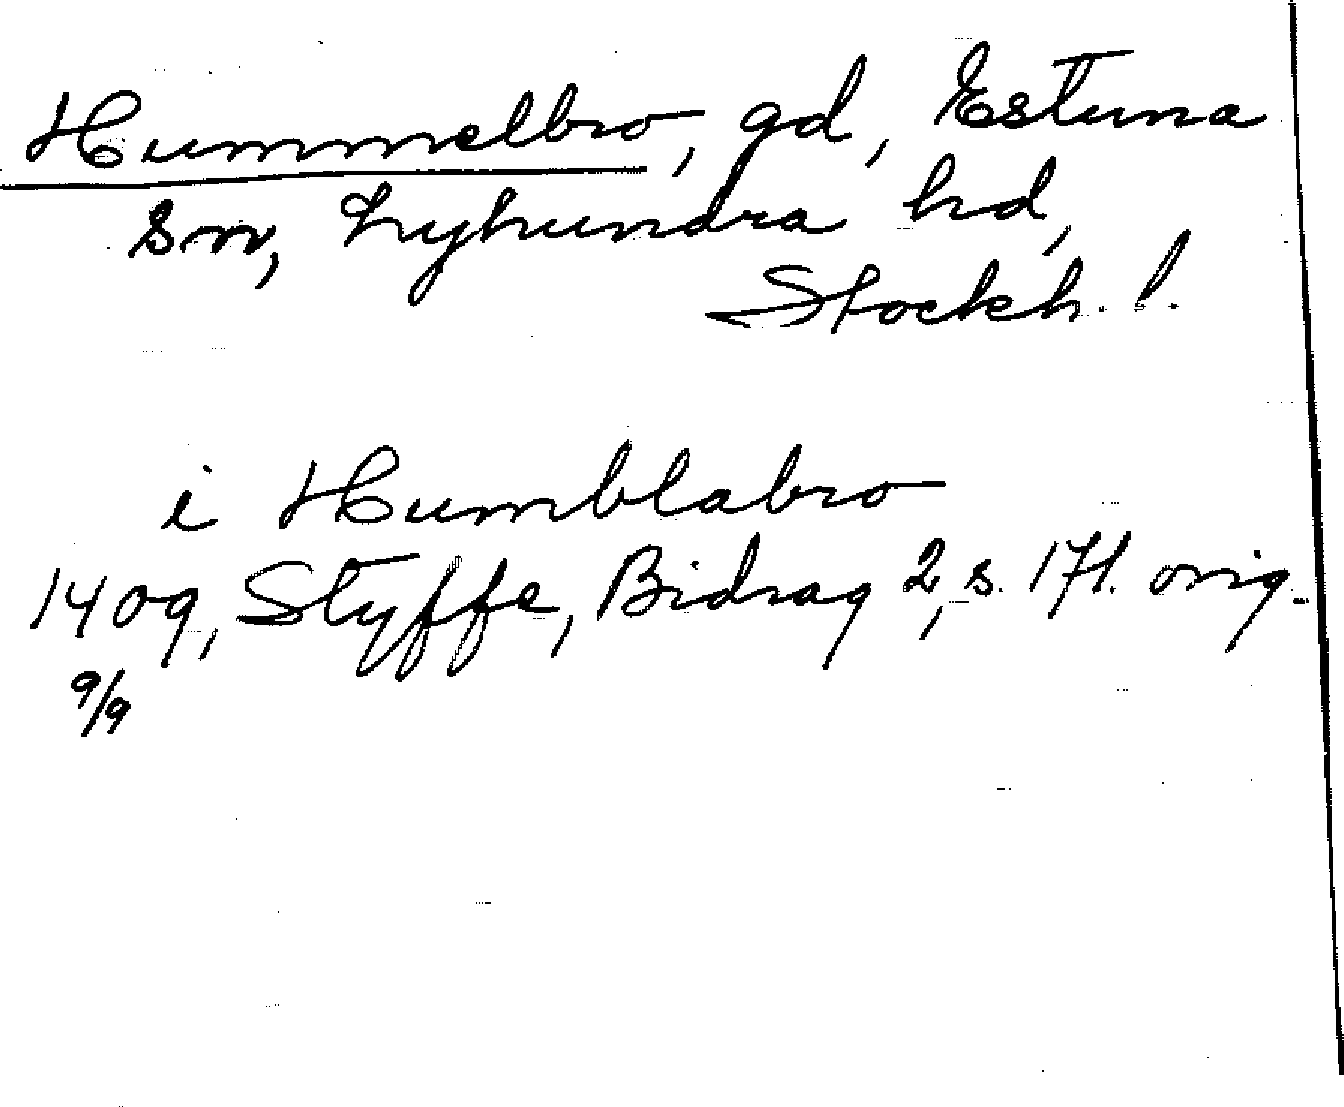 Hummelbro, gd, Estuna
sn, Lyhundra hd,
Stockh. l.
i Humblabro
1409, Styffe, Bidrag 2, s. 171. orig.
9/9